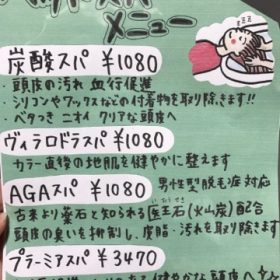 ヘッドスパ
メニュー
zzz
炭酸スパ ¥1080
・頭皮の汚れ 血行促進
・シリコンやワックスなどの付着物を取り除きます!!
・ベタつき ニオイ クリアな頭皮へ
ヴィラロドラスパ ¥1080
カラー直後の地肌を健やかに整えます
AGAスパ ¥1080 男性型脱毛症対応
古来より薬石と知られる医王石(火山炭)配合
頭皮の臭いを抑制し、皮脂・汚れを取り除きます
プラーミアスパ ¥3470